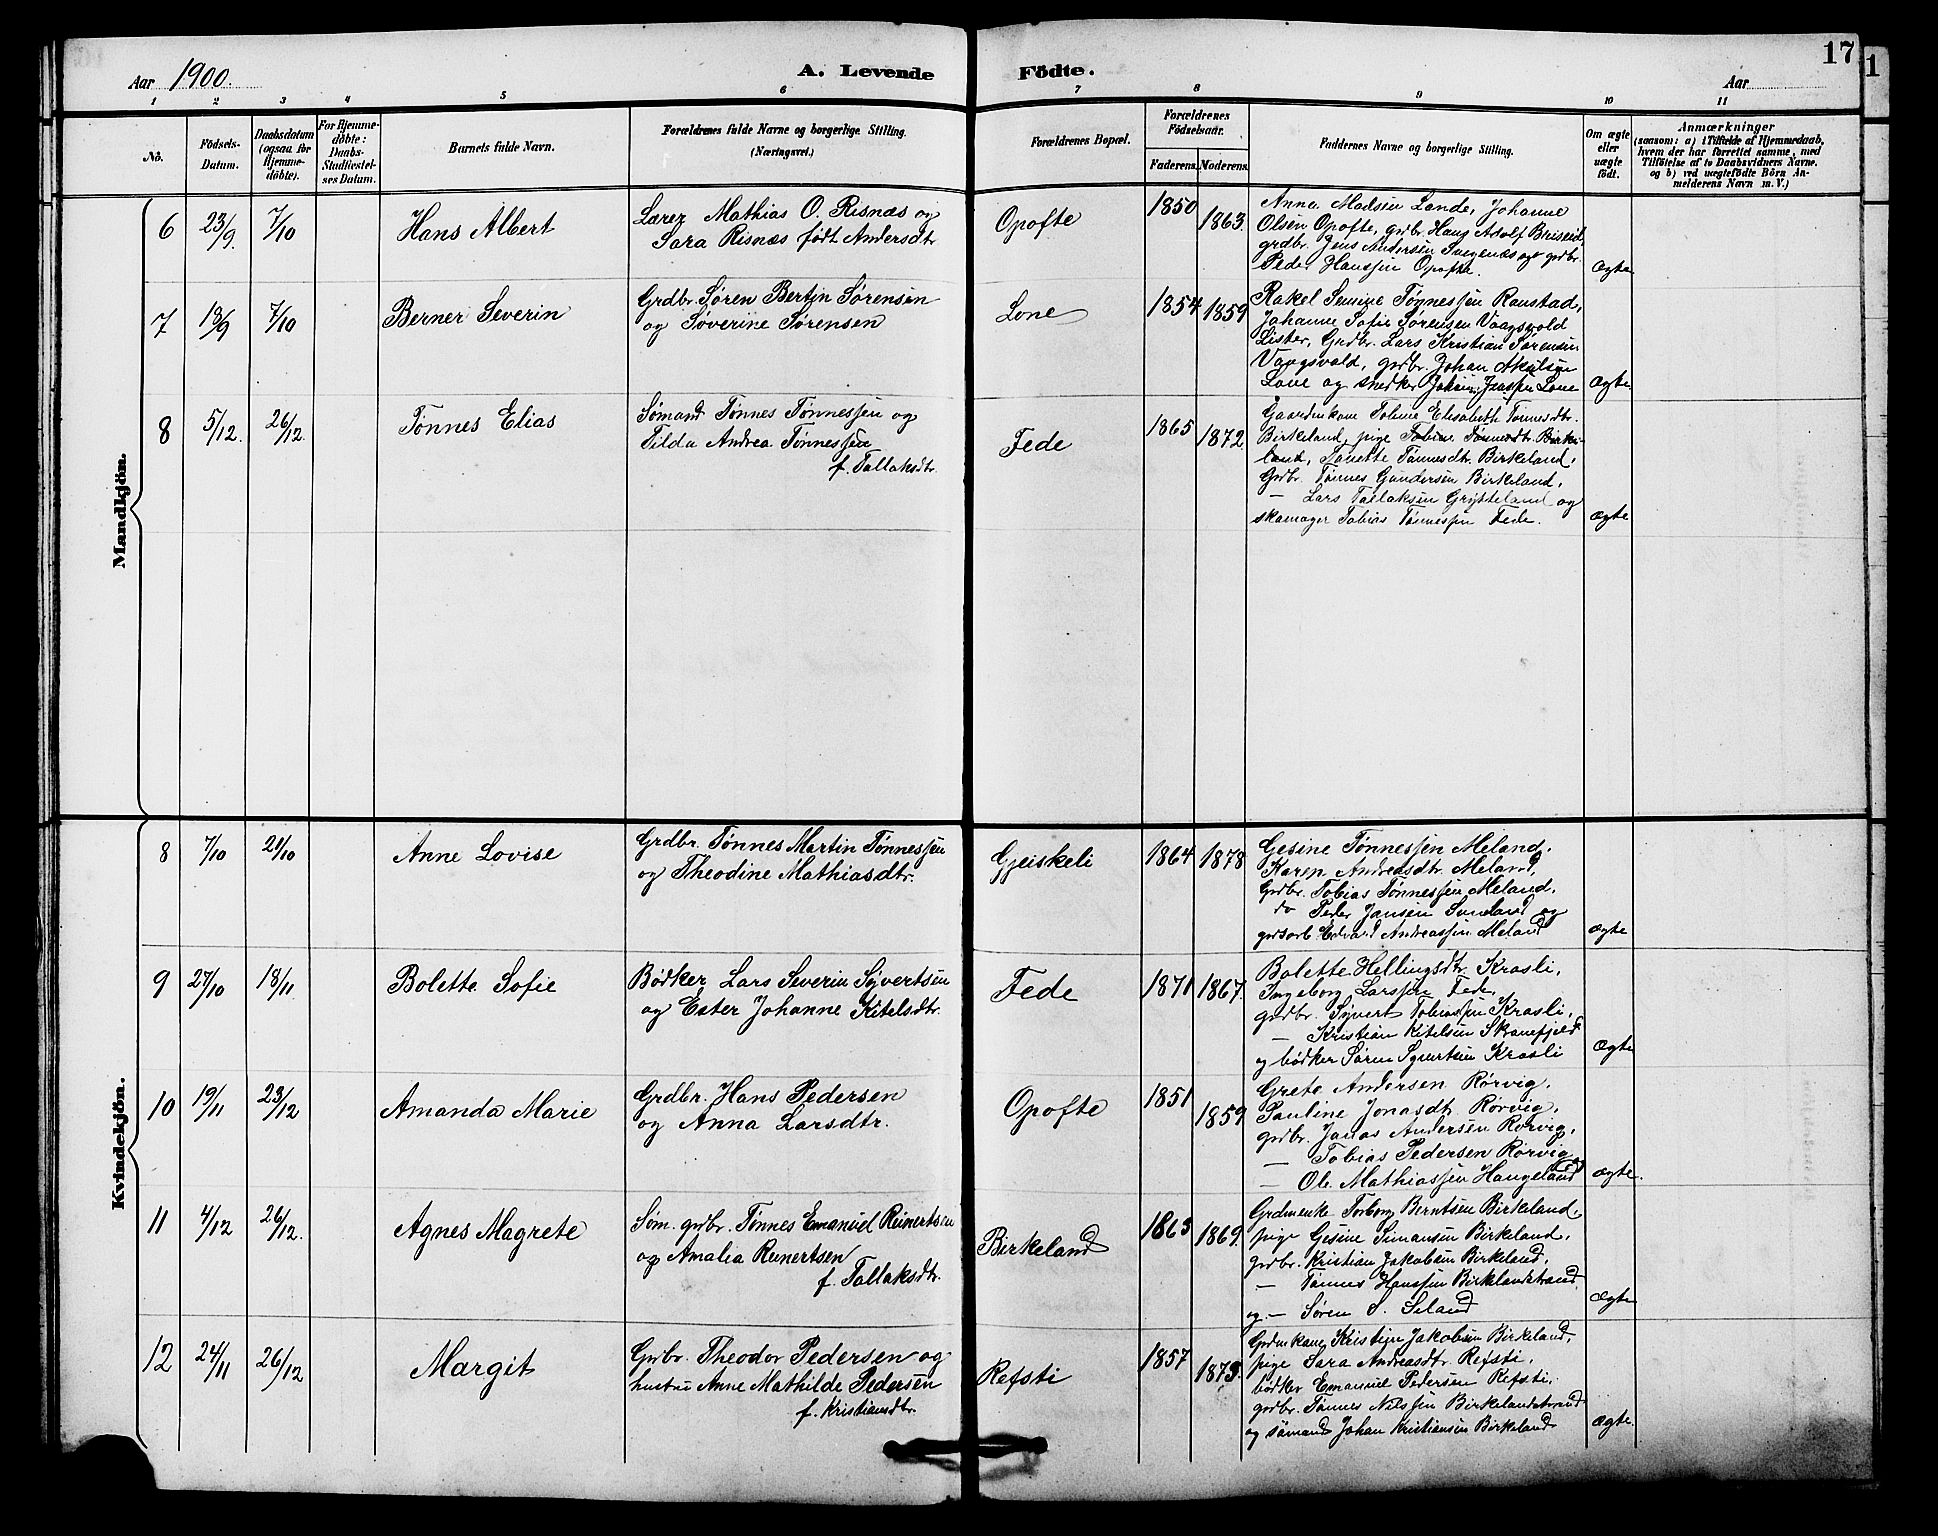 Aar 1900.
A. Levende Födte.
17
Aar
1 2 3 4 5 6 7 8 9 10 11
No.
Födsels-
Datum.
Daabsdatum
(ogsaa for
Hjemme-
döbte).
For Hjemme-
döbte:
Daabs-
Stadfæstel-
ses Datum.
Barnets fulde Navn.
Forældrenes fulde Navne og borgerlige Stilling.
(Næringsvei.)
Forældrenes Bopæl.
Forældrenes
Födselsaar.
Faderens. Moderens.
Faddernes Navne og borgerlige Stilling.
Om ægte
eller
uægte
födt.
Anmærkninger
(saasom: a) i Tilfælde af Hjemmedaab,
hvem der har forrettet samme, med
Tilföielse af to Daabsvidners Navne,
og b) ved uægtefödte Börn An-
melderens Navn m. V.)
Mandkjön.
6 23/9 7/10 Hans Albert
Lærer Mathias O. Risnæs og
Sara Risnæs født Andersdtr.
Opofte 1850 1863.
Anna Madsen Lande, Johanne
Olsen Opofte, grdbr. Hans Adolf Briseid,
grdbr. Jens Andersen Svegenæs og grdbr.
Peder Hanssen Opofte.
Ægte
7 18/9 7/10 Berner Severin
Grdbr. Søren Bertin Sørensen
og Søverine Sørensen
Lone 1854 1859
Rakel Semine Tønnessen Ranstad,
Johanne Sofie Sørensen Vaagsvold
Lister, Grdbr. Lars Kristian Sørensen
Vaagsvold, grdbr. Johan
Lone og snedker Lone
Ægte
8 5/12. 26/12. Tønnes Elias
Sømand Tønnes Tønnessen og
Tilda Andrea Tønnessen
f. Tallaksdtr.
Fede 1865 1872.
Gaardmkone Toline Elisabeth Tønnesdtr.
Birkeland, pige Tobine Tønnesdtr. Birke-
land, Tanette Tønnesdtr. Birkeland,
Grdbr. Tønnes Gundersen Birkeland,
— Lars Tallaksen Grytteland og
skomager Tobias Tønnessen Fede.
Ægte
Kvindekjön.
8 7/10 21/10 Anne Lovise
Grdbr. Tønnes Martin Tønnessen
og Theodine Mathiasdtr.
Gjeiskeli 1864 1878
Gesine Tønnessen Meland,
Karen Andreasdtr. Meland,
Grdbr. Tobias Tønnessen Meland,
do Peder Jansen Sunland og
grdsarb. Edvard Andreassen Meland
Ægte
9 27/10 18/11. Bolette Sofie
Bødker Lars Severin Syvertsen
og Ester Johanne Kitelsdtr.
Fede 1871 1867.
Bolette Hellingsdtr. Krosli,
Ingeborg Larssen Fede,
grdbr. Syvert Tobiassen Krosli,
— Kristian Kitelsen Skanefjeld
og bødker Søren Syvertsen Krosli
Ægte
10 19/11 23/12 Amanda Marie
Grdbr. Hans Pedersen
og Anna Larsdtr.
Opofte 1851 1859
Grete Andersen Rørvig,
Pauline Jonasdtr. Rørvig,
grdbr. Jonas Andersen Rørvig,
— Tobias Pedersen Rørvig
— Ole Mathiassen Haugeland
Ægte.
11 4/12 26/12. Agnes Magrete
Søm. grdbr. Tønnes Emanuel Reinertsen
og Amalia Reinertsen
f. Tallaksdtr.
Birkeland 1863 1869.
Grdmenke Torborg Berntsen Birkeland,
pige Gesine Simonsen Birkeland,
grdbr. Kristian Jakobsen Birkeland,
— Tønnes Hanssen Birkelandstrand
og — Søren S. Seland
Ægte
12 24/11 26/12 Margit
Grdbr. Theodor Pedersen og
hustru Anne Mathilde Pedersen
f. Kristiansdtr.
Refsti 1857 1873.
Grdmkone Kristine Jakobsen Birkeland,
pige Sara Andreasdtr. Refsti,
bødker Emanuel Pedersen Refsti,
grdbr. Tønnes Nilssen Birkelandstrand
og sømand Johan Kristiansen Birkeland
Ægte